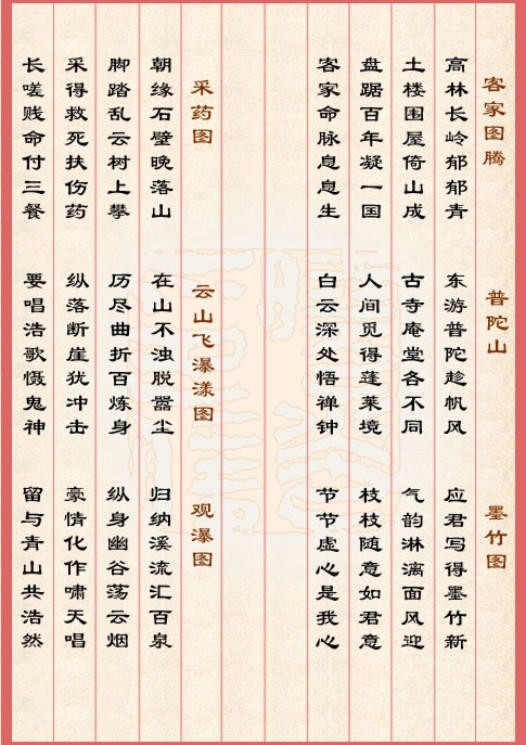 客家图腾
高林长岭郁郁青
土楼围屋倚山成
盘踞百年凝一国
客家命脉息息生
普陀山
东游普陀趁帆风
古寺庵堂各不同
人间觅得蓬莱境
白云深处悟禅钟
墨竹图
应君写得墨竹新
气韵淋漓面风迎
枝枝随意如君意
节节虚心是我心
采药图
朝缘石壁晚落山
脚踏乱云树上攀
采得救死扶伤药
长嗟贱命付三餐
云山飞瀑漾图
在山不浊脱嚣尘
历尽曲折百炼身
纵落断崖犹冲击
要唱浩歌慑鬼神
观瀑图
归纳溪流汇百泉
纵身幽谷荡云烟
豪情化作啸天唱
留与青山共浩然